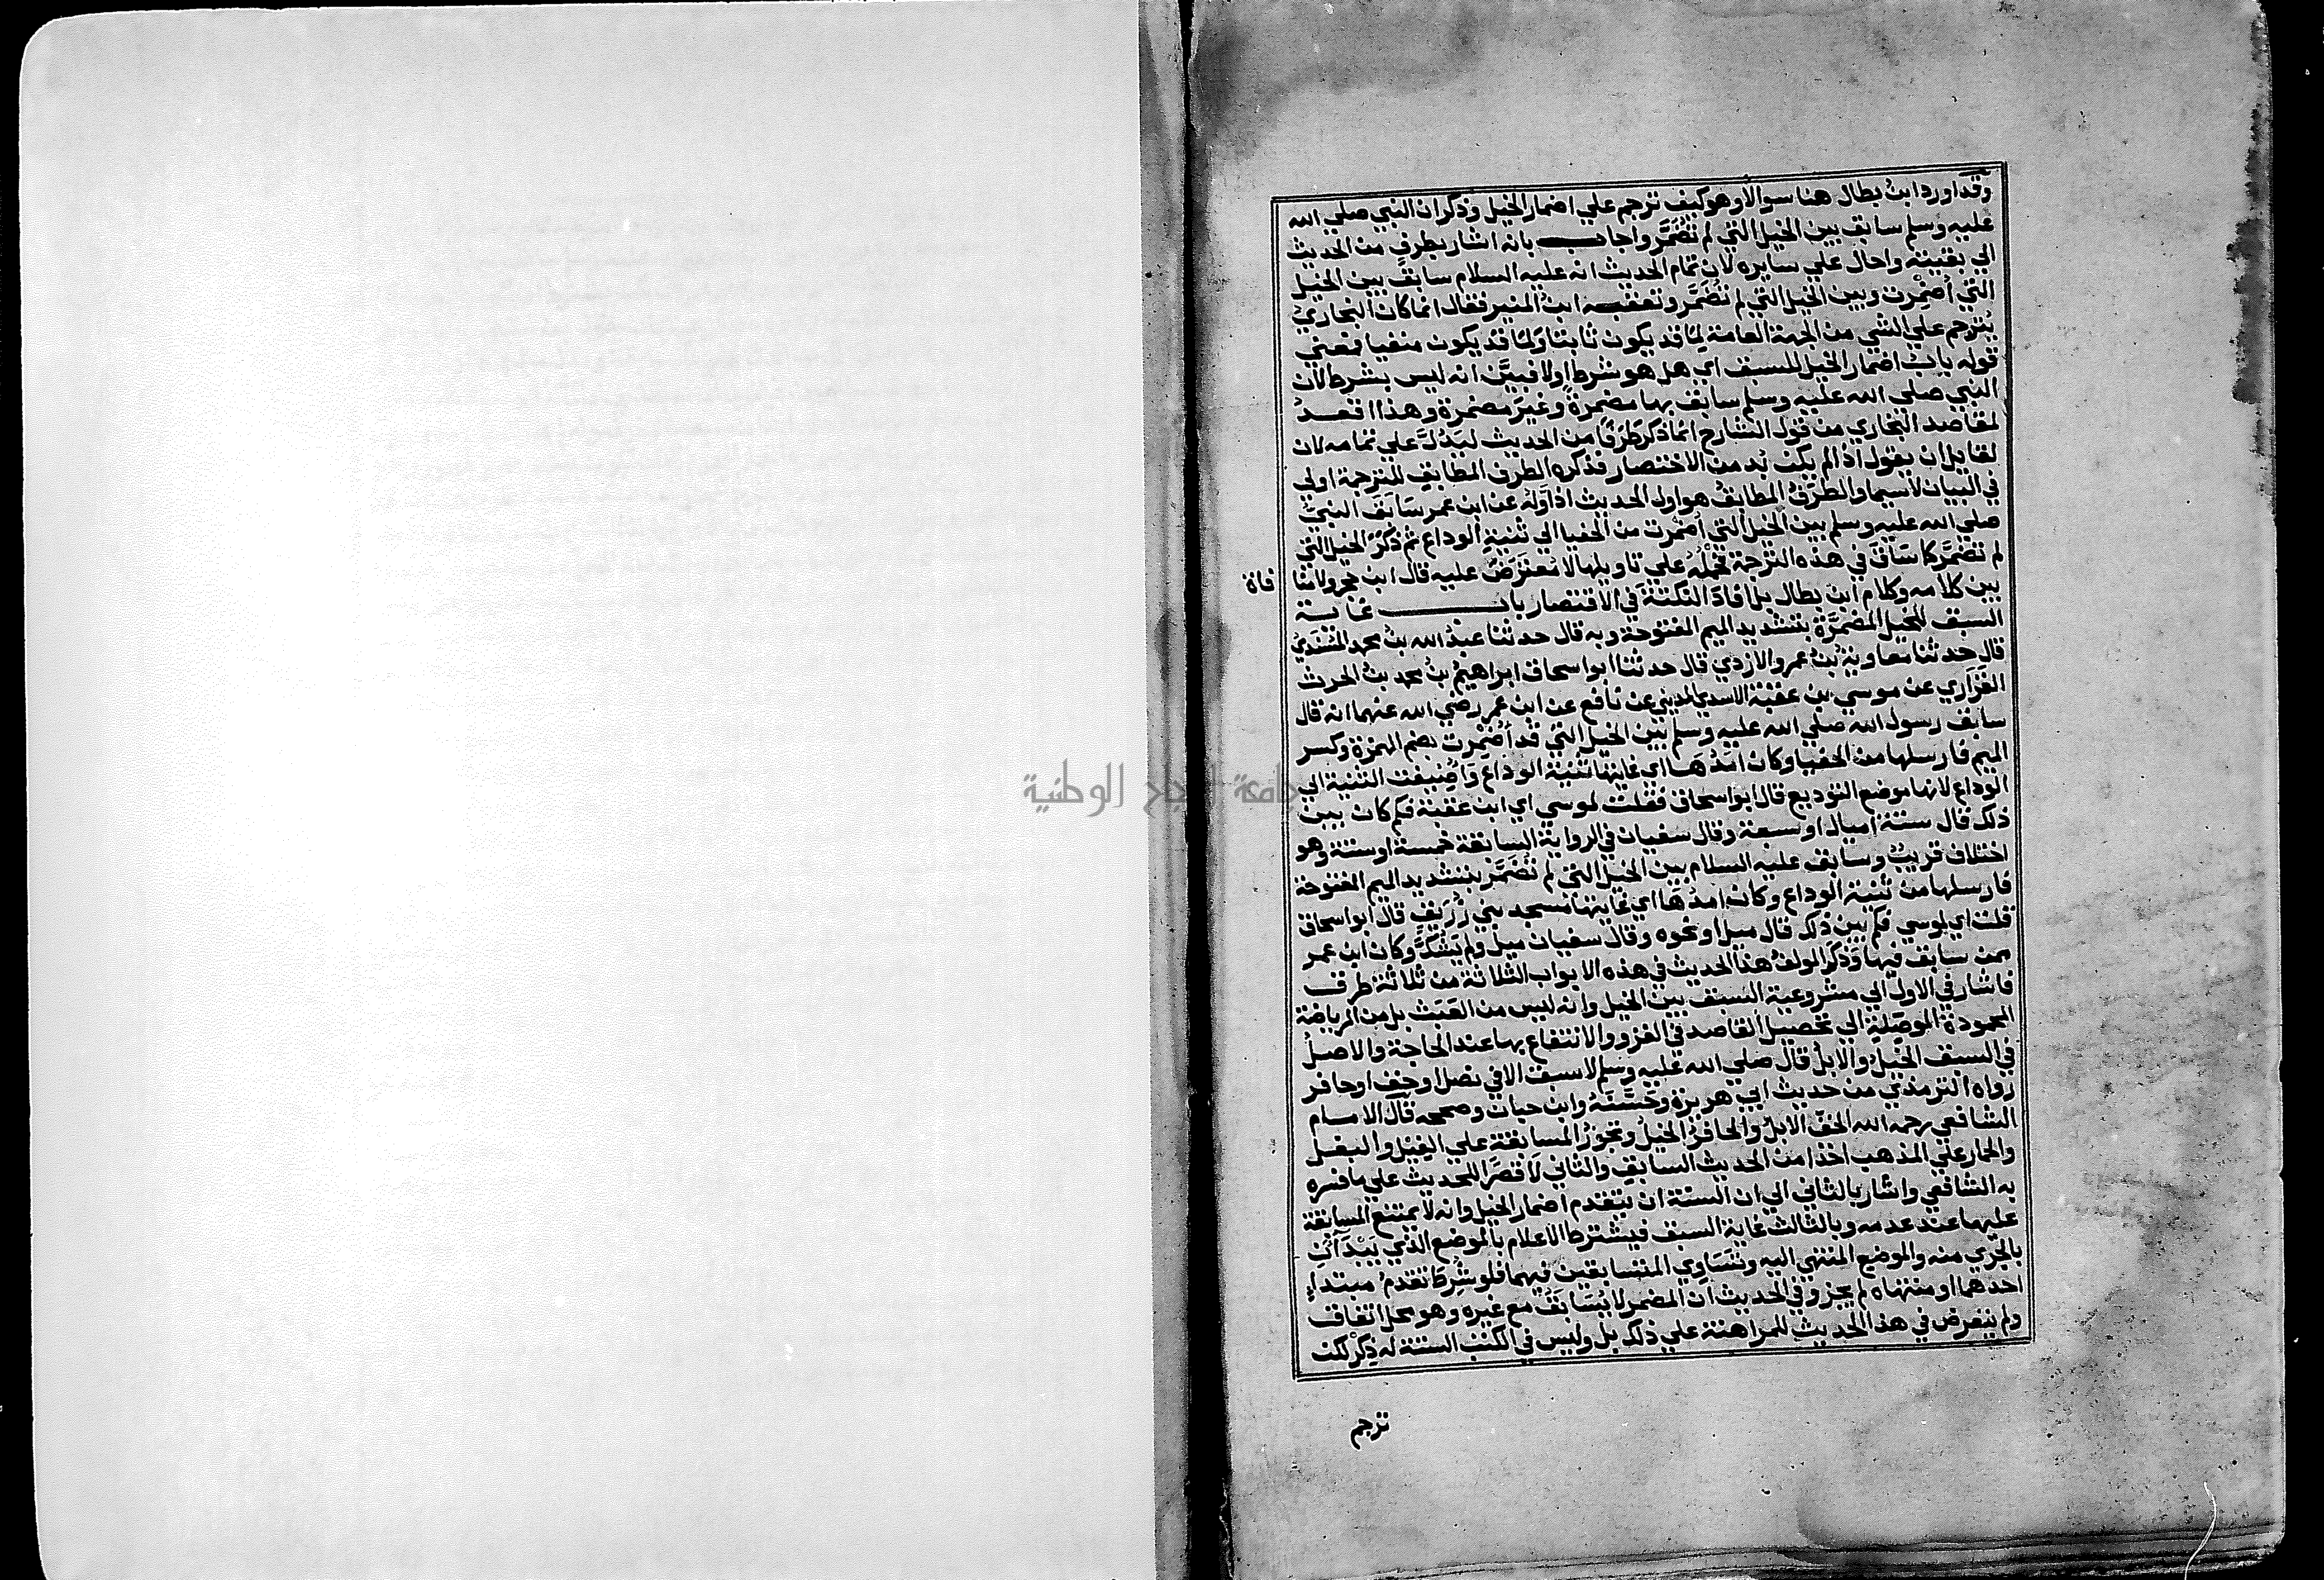 وقد اورد ابن بطال هنا سوالا وهو كيف ترجم علي اضمار الخيل وذكر ان النبي صلي الله
عليه وسلم سابق بين الخيل التي لم تُضَمَّر واجاب بانه اشار بطرفٍ من الحديث
الي بقيته واحال علي سايره لان تمام الحديث انه عليه السلام سابق بين الخيل
التي أُضْمِرت وبين الخيل التي لم تُضَمَّر وتعقبه ابنُ المنير فقال انما كان البخاري
يُترجم علي الشي من الجهة العامة لِما قد يكون ثابتا ولما قد يكون منفيا فمعني
قوله باب اضمار الخيل للسبق اي هل هو شرط اولا فبيَّن انه ليس بشرط لان
النبي صلي الله عليه وسلم سابق بها مضمرةً وغيرَ مضمرة وهذا اقعدُ
لمقاصد البخاري من قول الشارح انما ذكر طَرَفًا من الحديث ليَدُلَّ علي تمامه لان
لقايل ان يقول اذا لم يكن بُد من الاختصار فذكره الطرف المطابق للترجمة اولي
في البيان لاسيما والطرَفُ المطابقُ هو اول الحديث اذ اَوَّلهُ عن ابن عمر سَابَقَ النبيُ
صلي الله عليه وسلم بين الخيل التي أُضمرت من الحفيا الي ثنيةِ الوداع ثم ذكَرَ الخيل التي
لم تضمَّر كما سَاقَ في هذه الترجمة فحَمْلُهُ علي تاويلها لا مُعترَضٌ عليه قال ابن حجر ولا منا
فاة
بين كلامه وكلام ابن بطال بل افادَ النكتةَ في الاقتصار باب غاية
السبق للخيل المضمَّرة بتشديد الميم المفتوحة وبه قال حدثنا عبدُ الله بن محمد المُسْنَدِيُ
قال حدثنا معاوية بن عمرو الازدي قال حدثنا ابو اسحاق ابراهيمُ بن محمد بن الحرث
الفَزَاري عن موسي بن عقبة الاسدي المديني عن نافع عن ابن عمر رضي الله عنهما انه قال
سابق رسول الله صلي الله عليه وسلم بين الخيل التي قد أُضْمِرت بضم الهمزة وكسر
الميم فارسلها من الحفيا وكان امَدُهَا اي غايتها ثنية الوداع وَاُضِيفت الثنية الي
الوداع لانها موضع التوديع قال ابو اسحاق فقلت لموسي اي ابن عقبة فكم كان بين
ذلك قال ستة اميال او سبعة وقال سفيان في الرواية السابقة خمسة او ستة وهو
اختلاف قريبٌ وسابق عليه السلام بين الخيل التي لم تُضَمَّر بتشديد الميم المفتوحة
فارسلها من ثنية الوداع وكان امدُهَا اي غايتها مسجد بني زُرَيقٍ قال ابو اسحاق
قلت اي لموسي فكم بين ذلك قال ميل او نحوه وقال سفيان ميل ولم يَشُكَّ وكان ابن عمر
ممن سابق فيها وذكر المولفُ هذا الحديث في هذه الابواب الثلاثة من ثلاثة طرق
فاشار في الاول الي مشروعية السبق بين الخيل وانه ليس من العَبَث بل من الرياضة
المحمودة الموصِّلةِ الي تحصيل المقاصد في الغزو والانتفاع بها عند الحاجة والاصلُ
في السبق الخيلُ والابلُ قال صلي الله عليه وسلم لا سبق الا في نصل او خف او حافر
رواه الترمذي من حديث ابي هريرة وحَسَّنَهُ وابن حبان وصححه قال الامام
الشافعي رحمه الله الخفُّ الابلُ والحافرُ الخيلُ وتجوزُ المسابقة علي الفيل والبغل
والحمار علي المذهب اخذا من الحديث السابقِ والثاني لا قصرًا للحديث علي ما فسره
به الشافعي واشار بالثاني الي ان السنة ان يتقدم اضمار الخيل وانه لا يمتنع المسابقة
عليها عند عدمه وبالثالث غاية السبق فيشترط الاعلام بالموضع الذي يَبْدآنِ
بالجَرْي منه والموضع المنتهي اليه وتَسَاوِي المتسابقين فيهما فلو شُرِطَ تقدمُ مبتداءِ
احدهما او منتهاه لم يجز وفي الحديث ان المضمر لا يُسَابَقُ مع غيره وهو محل اتفاق
ولم يتعرض في هذا الحديث للمراهنة علي ذلك بل وليس في الكتب الستة له ذِكْرٌ لكن
ترجم
جامعة النجاح الوطنية